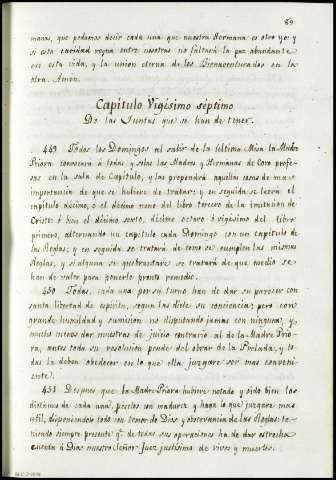 89
manas, que podamos decir cada una que nuestra Hermana es otro yo; y
si esta caridad reyna entre nosotras no faltará la paz abundante
en esta vida, y la union eterna de los Bienaventurados en la
otra. Amen.
Capitulo Vigésimo séptimo
De las Juntas que se han de tener.
449 Todos los Domingos al salir de la última Misa la Madre
Priora convocará á todas y solas las Madres y Hermanas de Coro profe-
sas en la sala de Capítulo, y las propondrá aquellas cosas de mas
importancia de que se hubiere de tratar; y en seguida se leerá el
capítulo décimo, ó el décimo nono del libro tercero de la imitacion de
Cristo: ó bien el décimo sexto, décimo octavo ó vigésimo del libro
primero, alternando un capítulo cada Domingo con un capítulo de
las Reglas; y en seguida se tratará de como se cumplen las mismas
Reglas, y si alguna se quebrantare se tratará de que medio se
han de valer para ponerlo pronto remedio.
450 Todas, cada una por su turno han de dar su parecer con
santa libertad de espíritu, segun las dicte su conciencia; pero con
grande humildad y sumision no disputando jamas con ninguna, y
mucho menos dar muestras de juicio contrario al de la Madre Prio-
ra, antes toda su resolucion pende del obrar de la Prelada, y to-
das la deben obedecer en lo que ella juzgare ser mas conveni-
ente.
451 Despues que la Madre Priora hubiere notado y oido bien los
dictámenes de cada una, péselos con madurez y haga lo que juzgare mas
útil, disponiéndolo todo con temor de Dios y observancia de las Reglas: te-
niendo siempre presente q.e de todas sus operaciones ha de dar estrecha
cuenta á Dios nuestro Señor Juez justísimo de vivos y muertos.